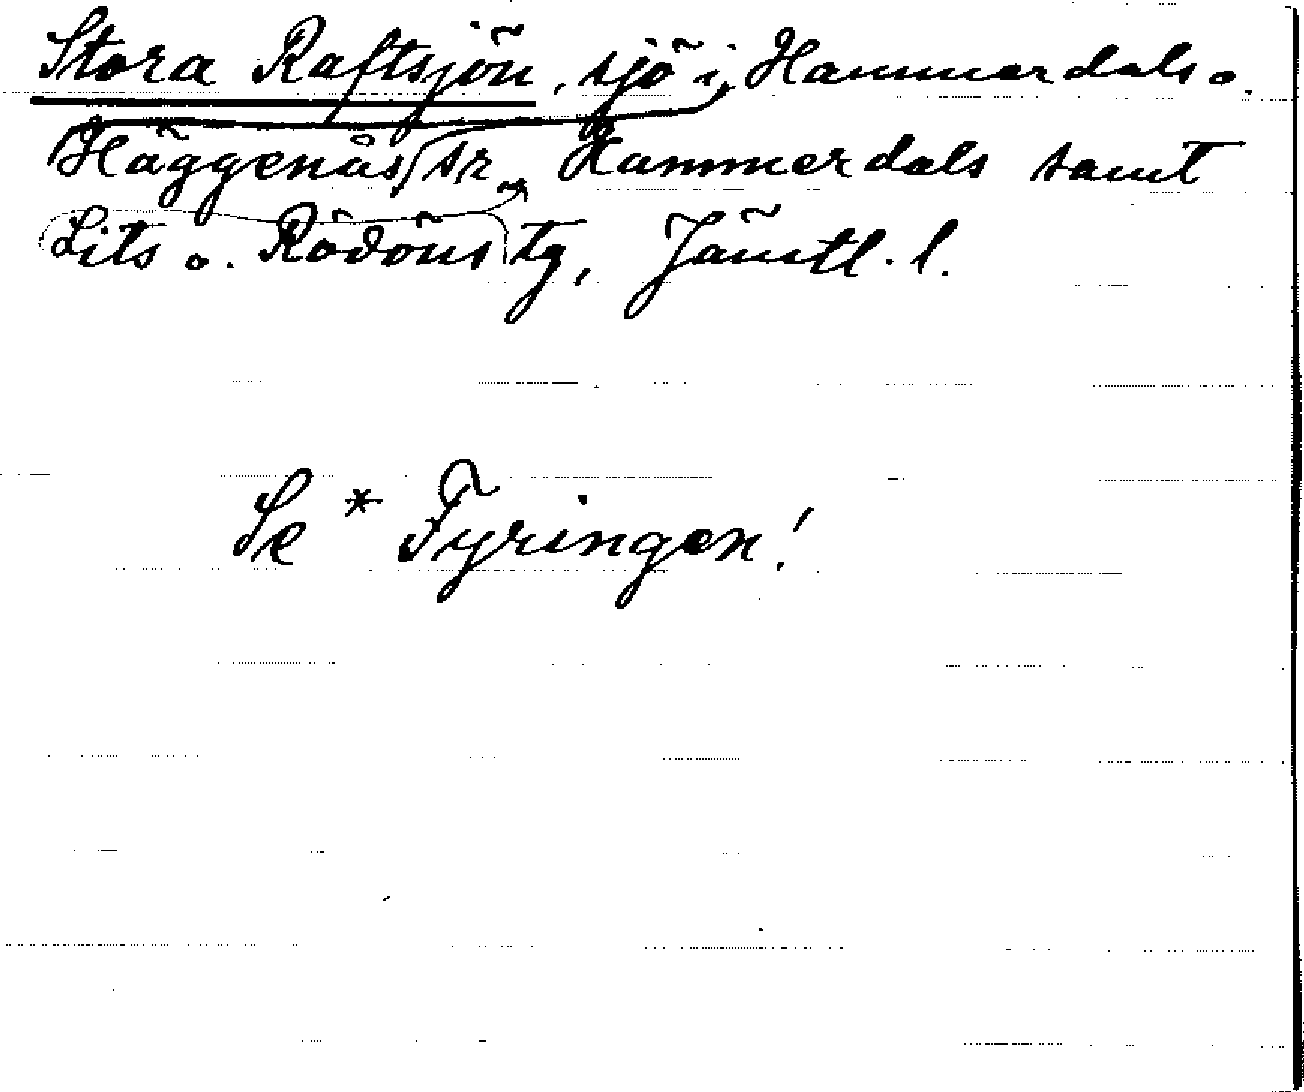 Stora Raftsjön, sjö i Hammerdals o.
Häggenås sr, Hammerdals samt
Lits o. Rödöns tg, Jämtl. l.
Se * Fyringen!